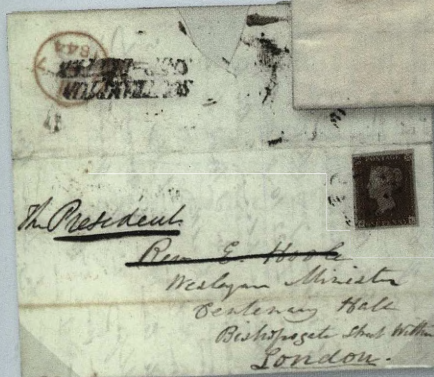 1844
POSTAGE
The President
Rev E. Hoole
Wesleyan Minister
Centenary Hall
Bishopsgate Street Within
London.